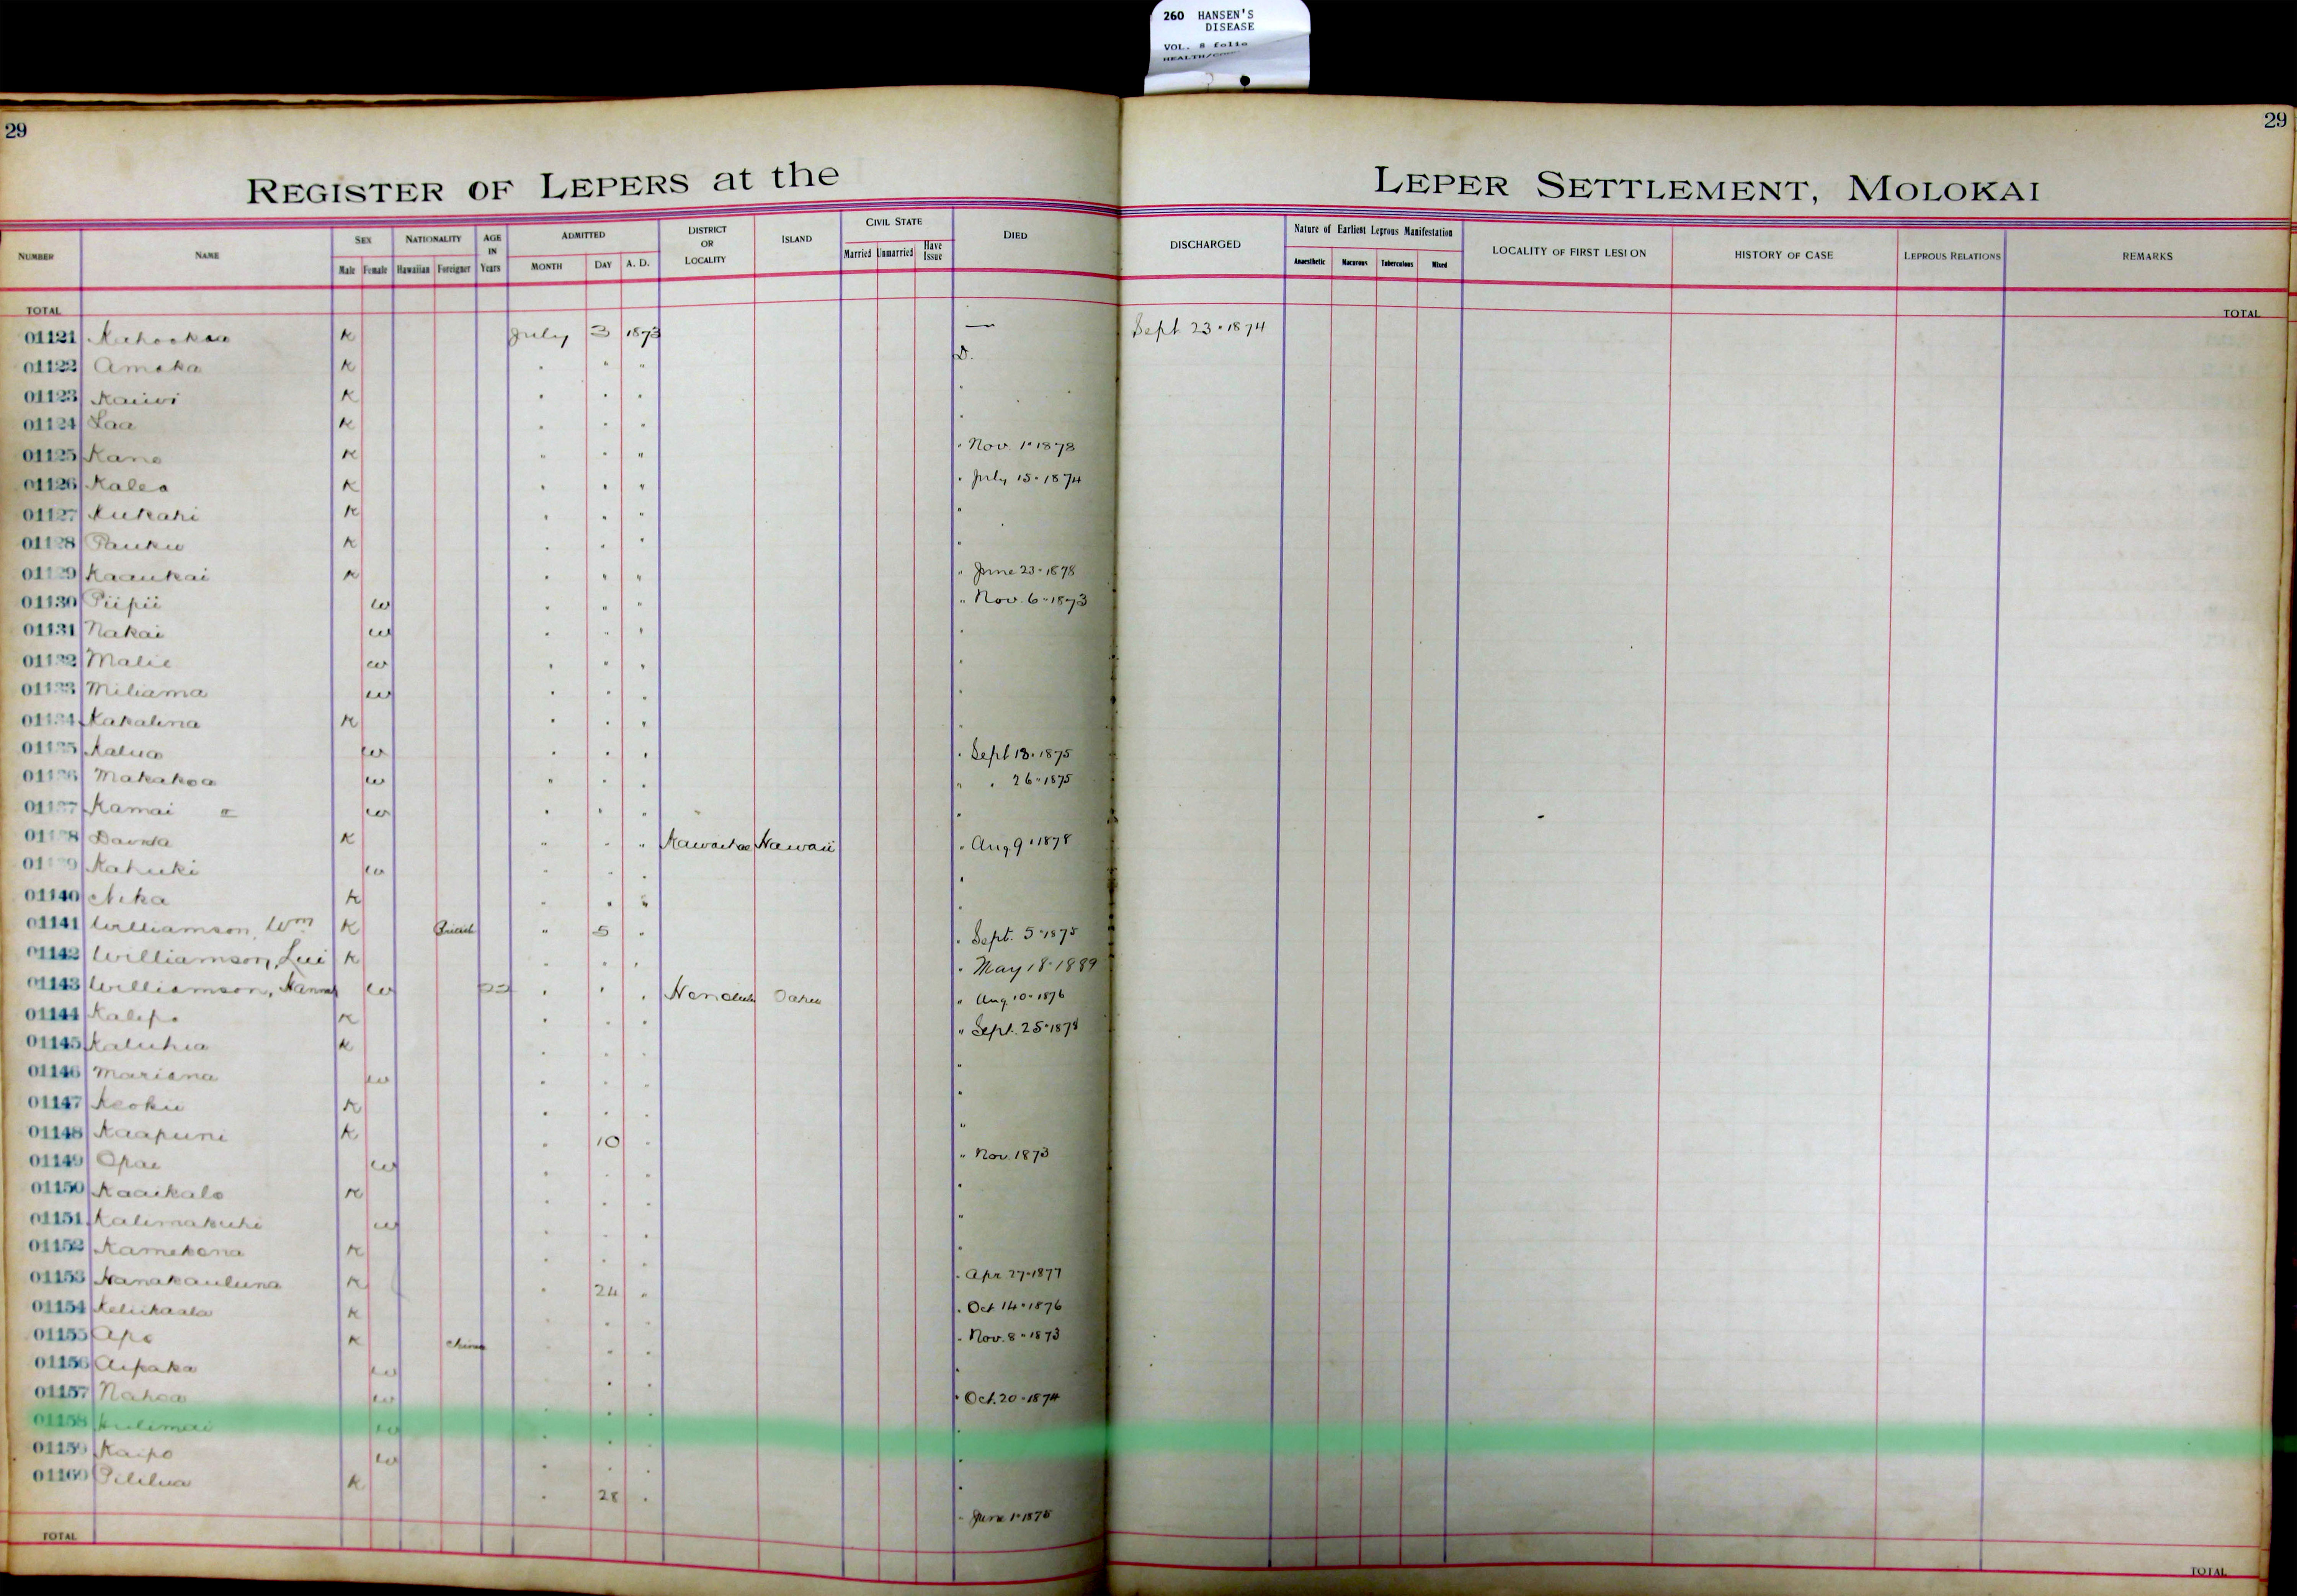 260 HANSEN'S
DISEASE
VOL. 8 folio
29
29
REGISTER OF LEPERS at the LEPER SETTLEMENT, MOLOKAI
NUMBER NAME SEX Male Female NATIONALITY Hawaiian Foreigner AGE IN Years ADMITTED MONTH DAY A. D. DISTRICT OR LOCALITY ISLAND CIVIL STATE Married Unmarried Have Issue DIED DISCHARGED Nature of Earliest Leprous Manifestation Anaesthetic Macurous Tuberculous Mixed LOCALITY OF FIRST LESION HISTORY OF CASE LEPROUS RELATIONS REMARKS
TOTAL TOTAL
01121 K July 3 1873 — Sept 23 · 1874
01122 Amaka K " " " D.
01123 Kaiwi K " " " "
01124 Laa K " " " "
01125 Kane K " " " " Nov. 1 · 1878
01126 Kalea K " " " " July 15 · 1874
01127 Kukahi K " " " "
01128 Pauku K " " " "
01129 Kaaukai K " " " " June 23 · 1878
01130 Piipii w " " " " Nov. 6 · 1873
01131 Nakai w " " " "
01132 Malie w " " " "
01133 Miliama w " " " "
01134 Kakalina K " " " "
01135 Kalua w " " " " Sept 18 · 1875
01136 Makakoa w " " " " " 26 · 1875
01137 Kamai w " " " "
01138 K " " " Kawaihae Hawaii " Aug 9 · 1878
01139 Kahuki w " " " "
01140 Nika K " " " "
01141 Williamson, Wm K British " 5 " " Sept. 5 · 1875
01142 Williamson, Lui K " " " " May 18 · 1889
01143 Williamson, w " " " Honolulu Oahu " Aug. 10 · 1876
01144 Kalepo K " " " " Sept. 25 · 1878
01145 Kaluhia K " " " "
01146 Mariana w " " " "
01147 Keoku K " " " "
01148 Kaapuni K " 10 " "
01149 Opae w " " " " Nov. 1873
01150 Kaaikalo K " " " "
01151 Kalimakuhi w " " " "
01152 Kamekona K " " " "
01153 Nanakauluna K " 24 " " Apr 27 · 1877
01154 Keliikaala K " " " " Oct 14 · 1876
01155 Apo K China " " " " Nov. 8 · 1873
01156 Aipaka w " " " "
01157 Nahoa w " " " " Oct. 20 · 1874
01158 Hulimai w " " " "
01159 Kaipo w " " " "
01160 Pililua K " 28 " " June 1 · 1875
TOTAL TOTAL